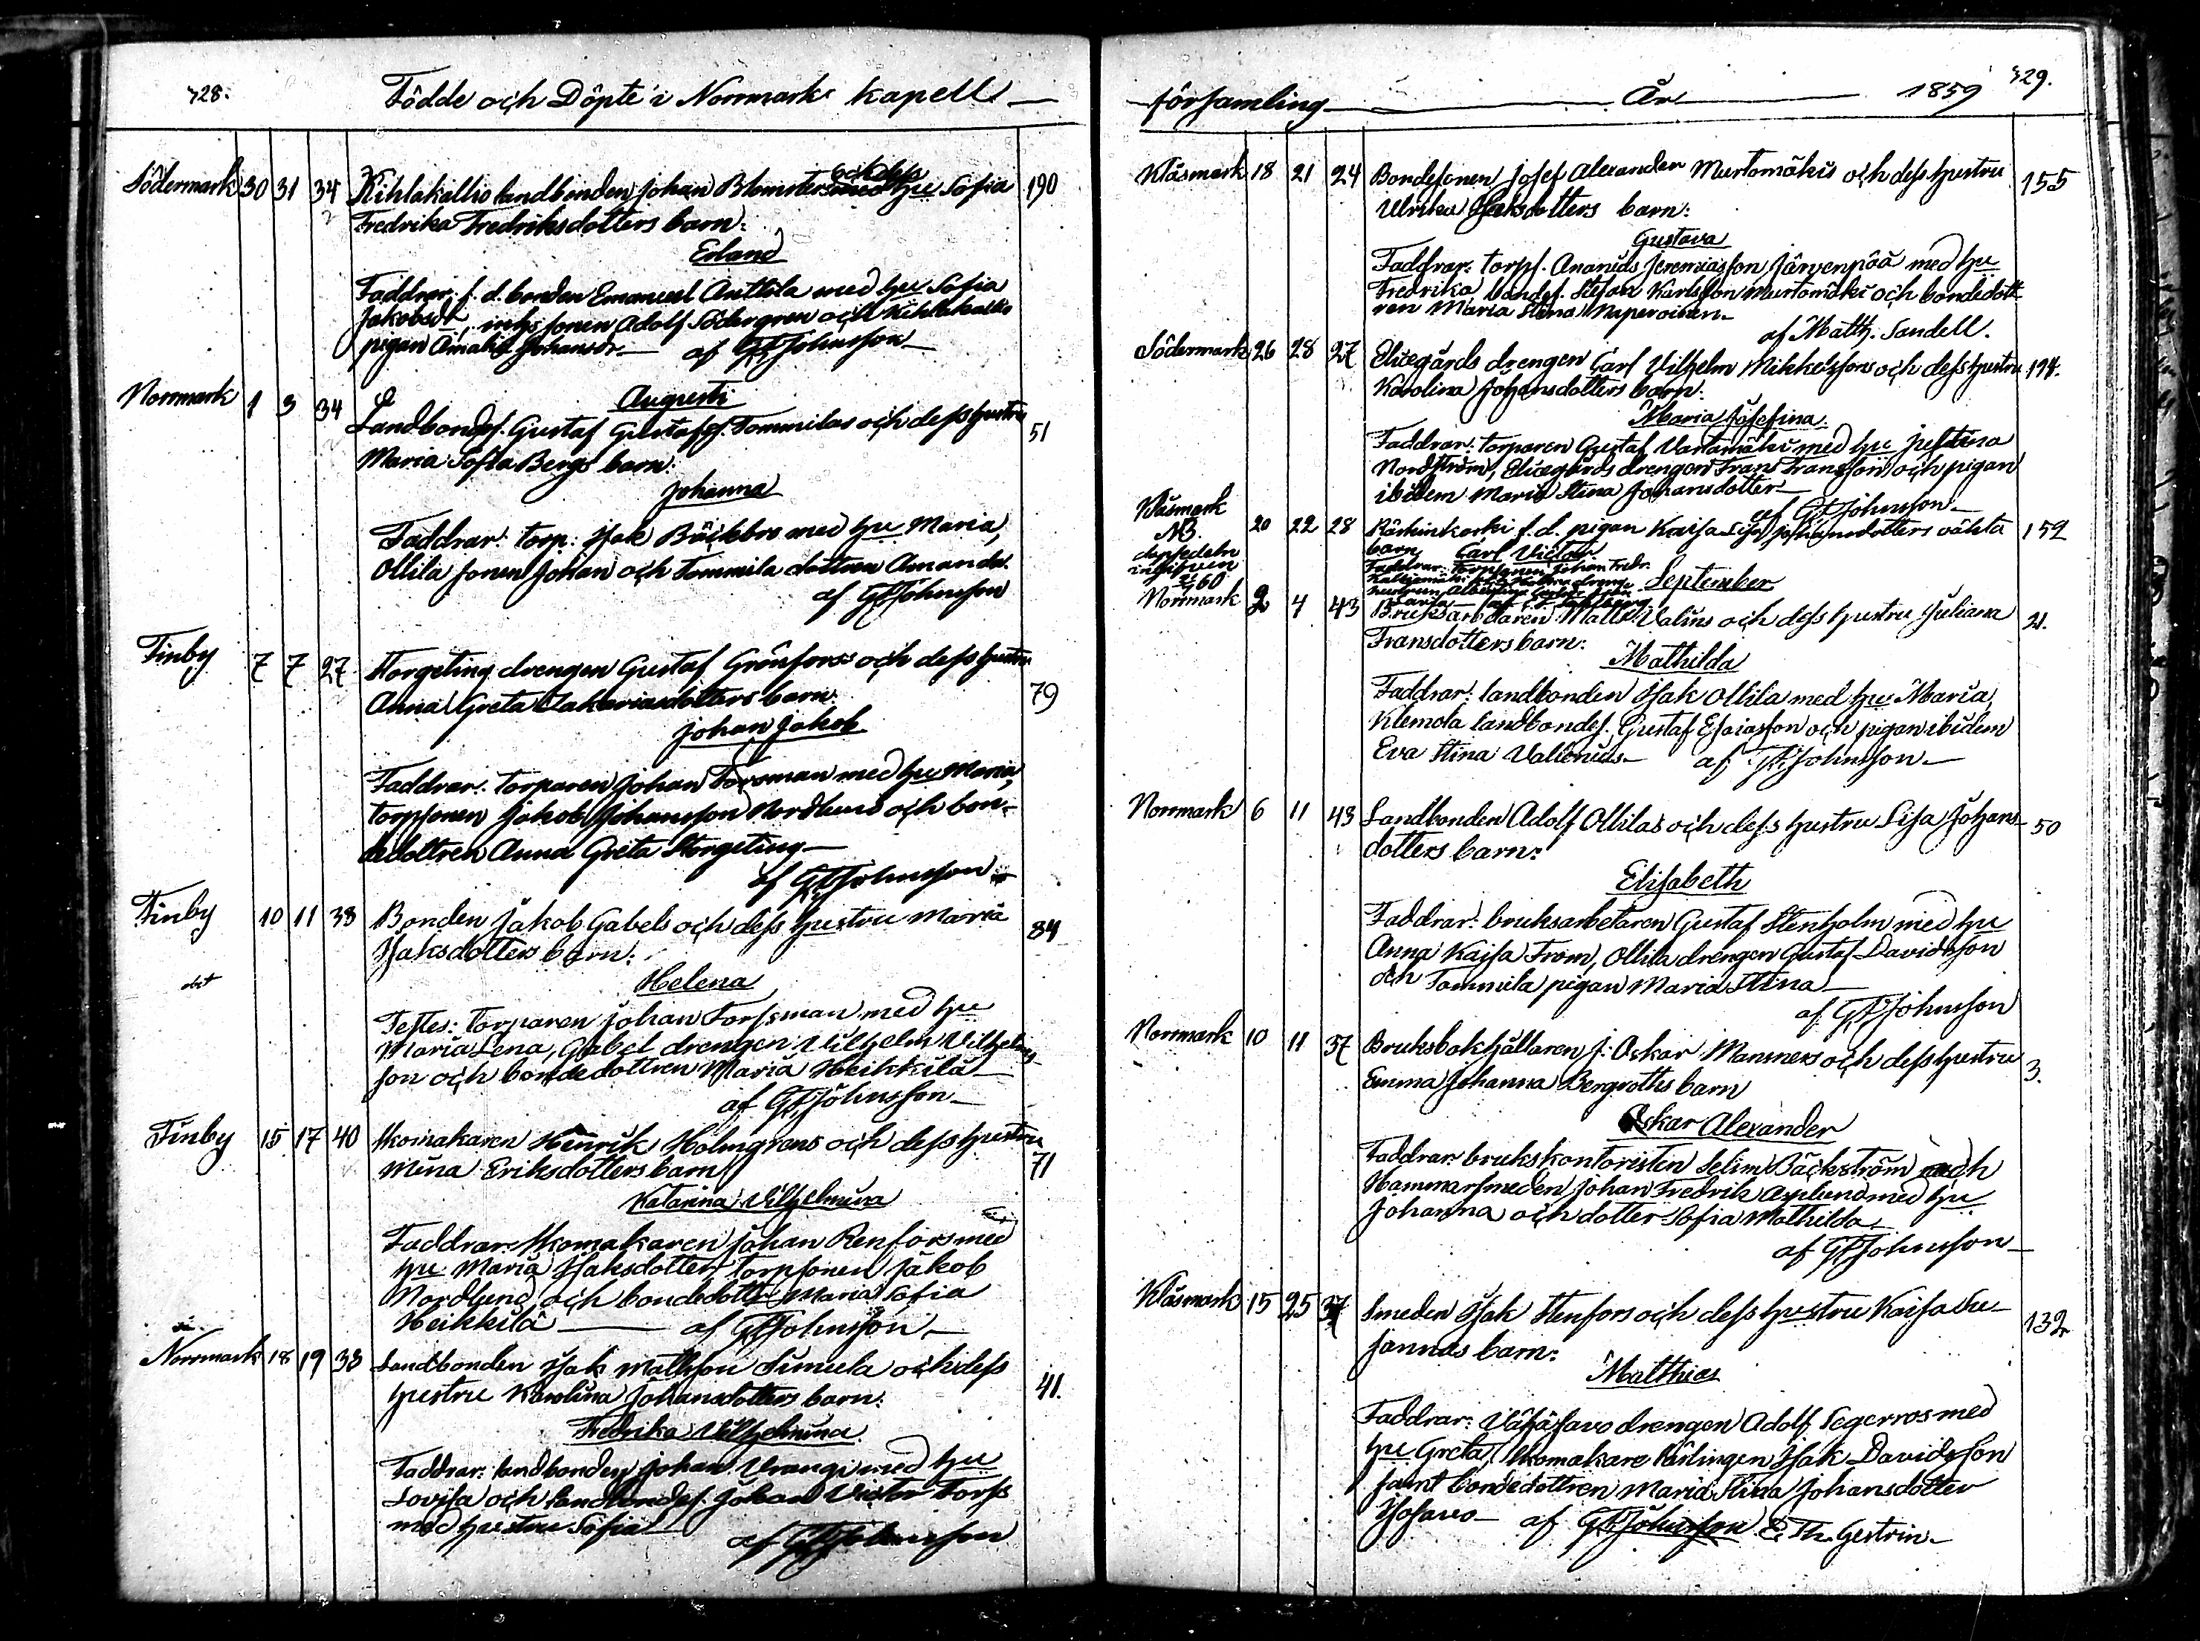 328.
Födde och Döpte i Norrmarks Kapell
Södermark 30 31 34 Kihlakallio landbonden Johan Blomsters och dess hu Sofia 190
Fredrika Fredriksdotters barn:
Erland
Faddrar: f. d. bonden Emanuel Anttila med hu Sofia
Jakobsdr, inhyssonen Adolf Södergren och Kihlakallio
pigan Amalia Johansdr. af GF Johnsson
Augusti
Norrmark 1 3 34 Landbondes. Gustaf Gustafss. Tommilas och dess hustru 51
Maria Sofia Bergs barn:
Johanna
Faddrar: torp: Isak Bäckbro med hu Maria,
Ollila sonen Johan och Tommila dottren Amanda.
af GF Johnsson
Finby 7 7 27 Storgeting drengen Gustaf Grönfors och dess hustru 79
Anna Greta Zakariasdotters barn:
Johan Jakob
Faddrar: torparen Johan Forsman med hu Maria,
torpsonen Jakob Johansson Nordlund och bon-
dedottren Anna Greta Storgeting
af GF Johnsson
Finby 10 11 38 Bonden Jakob Gabels och dess hustru Maria 84
Isaksdotters barn:
obit
Helena
Testes: Torparen Johan Forssman med hu
Maria Lena, Gabel drengen Vilhelm Vilhelms-
son och bondedottren Maria Heikkilä
af GF Johnsson
Finby 15 17 40 Skomakaren Henrik Holmgrens och dess hustru 71
Mina Eriksdotters barn
Katarina Vilhelmina
Faddrar: Skomakaren Johan Renfors med
hu Maria Isaksdotter torpsonen Jakob
Nordlund och bondedottr Maria Sofia
Heikkilä af GF Johnsson
Norrmark 18 19 38 Landbonden Isak Mattsson Simula och dess 41.
hustru Karolina Johansdotters barn:
Fredrika Vilhelmina
Faddrar: landbonden Johan Vrangi med hu
Lovisa och landbondes. Johan Victor Forss
med hustru Sofia
af GF Johnsson
329.
församling År 1859
Klåsmark 18 21 24 Bondesonen Josef Alexander Murtomäkis och dess hustru 155
Ulrika Isaksdotters barn:
Gustava
Faddrar: torps. Ananias Jeremiasson Järvenpää med hu
Fredrika bondes. Stefan Karlsson Murtomäki och bondedott-
ren Maria Stina
af Matth. Sandell.
Södermark 26 28 27 drengen Carl Vilhelm Mikkelssons och dess hustru 194.
Karolina Johansdotters barn:
Maria Josefina.
Faddrar: torparen Gustaf Vartamäki med hu Justina
Nordström, drengen Frans Fransson och pigan
ibidem Maria Stina Johansdotter
af GF Johnsson
Klåsmark 20 22 28 f. d. pigan Kaisa Lisa Johansdotters oäkta 152
NB.
barn Carl Victor
Faddrar: torpsonen Johan Fredr.
60
September
Norrmark 2 4 43 Bruksarbetaren Matts Valins och dess hustru Juliana 21.
Fransdotters barn:
Mathilda
Faddrar: landbonden Isak Ollila med hu Maria,
Klemola landbondes. Gustaf Esaiasson och pigan ibidem
Eva Stina Vallenius af GF Johnsson
Norrmark 6 11 43 Landbonden Adolf Ollilas och dess hustru Lisa Johans- 50
dotters barn:
Elisabeth
Faddrar: bruksarbetaren Gustaf Stenholm med hu
Anna Kaisa From, Ollila drengen Gustaf Davidsson
och Tommila pigan Maria Stina
af GF Johnsson
Norrmark 10 11 37 Bruksbokhållaren J. Oskar Mansners och dess hustru 3.
Emma Johanna Bergroths barn
Oskar Alexander
Faddrar: brukskontoristen Selim Bäckström och
Hammarsmeden Johan Fredrik Asplund med hu
Johanna och dotter Sofia Mathilda
af GF Johnsson
Klåsmark 15 25 37 Smeden Isak Stenfors och dess hustru Kaisa Su- 132
sannas barn:
Matthias
Faddrar: Vähäsavo drengen Adolf Segerros med
hu Greta, Skomakare lärlingen Isak Davidsson
samt bondedottren Maria Stina Johansdotter
Isosavo af GF Johnsson E. Th. Gestrin